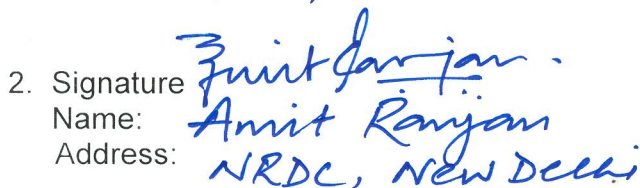 2. Signature Amit Ranjan.
Name: Amit Ranjan
Address: NRDC, New Delhi